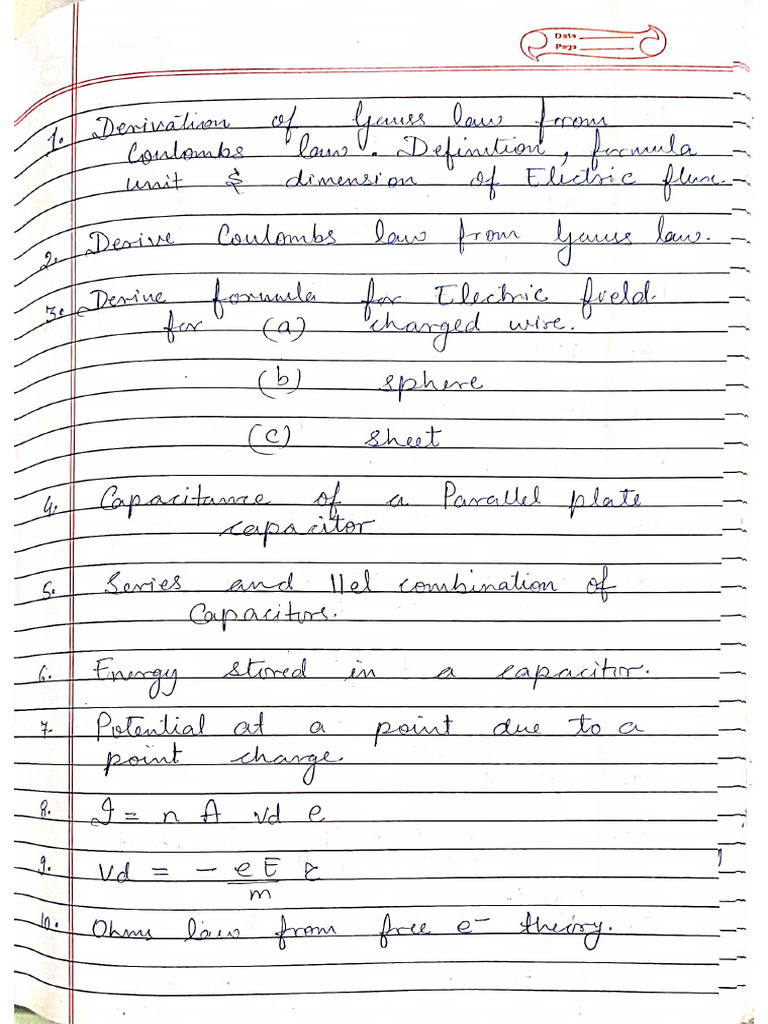 Date
Page
1. Derivation of Gauss law from
Coulombs law. Definition, formula
unit & dimension of Electric flux.
2. Derive Coulombs law from Gauss law.
3. Derive formula for Electric field.
for (a) charged wire.
(b) sphere
(c) sheet
4. Capacitance of a Parallel plate
capacitor
5. Series and llel combination of
Capacitors.
6. Energy stored in a capacitor.
7. Potential at a point due to a
point charge.
8. I = n A vd e
9. Vd = - eE τ
m
10. Ohms law from free e⁻ theory.